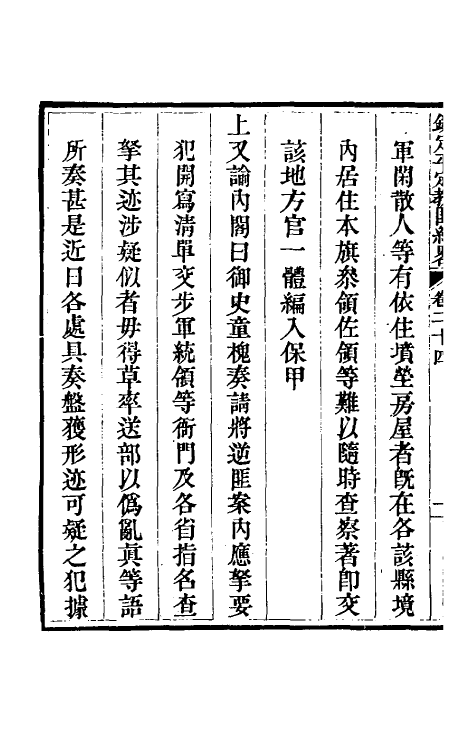 欽定平定教匪紀略 卷二十四 二
軍閑散人等有依住墳塋房屋者既在各該縣境
內居住本旗叅領佐領等難以隨時查察著卽交
該地方官一體編入保甲
上又諭內閣曰御史童槐奏請將逆匪案內應拏要
犯開寫清單交步軍統領等衙門及各省指名查
拏其迹涉疑似者毋得草率送部以僞亂眞等語
所奏甚是近日各處具奏盤獲形迹可疑之犯據